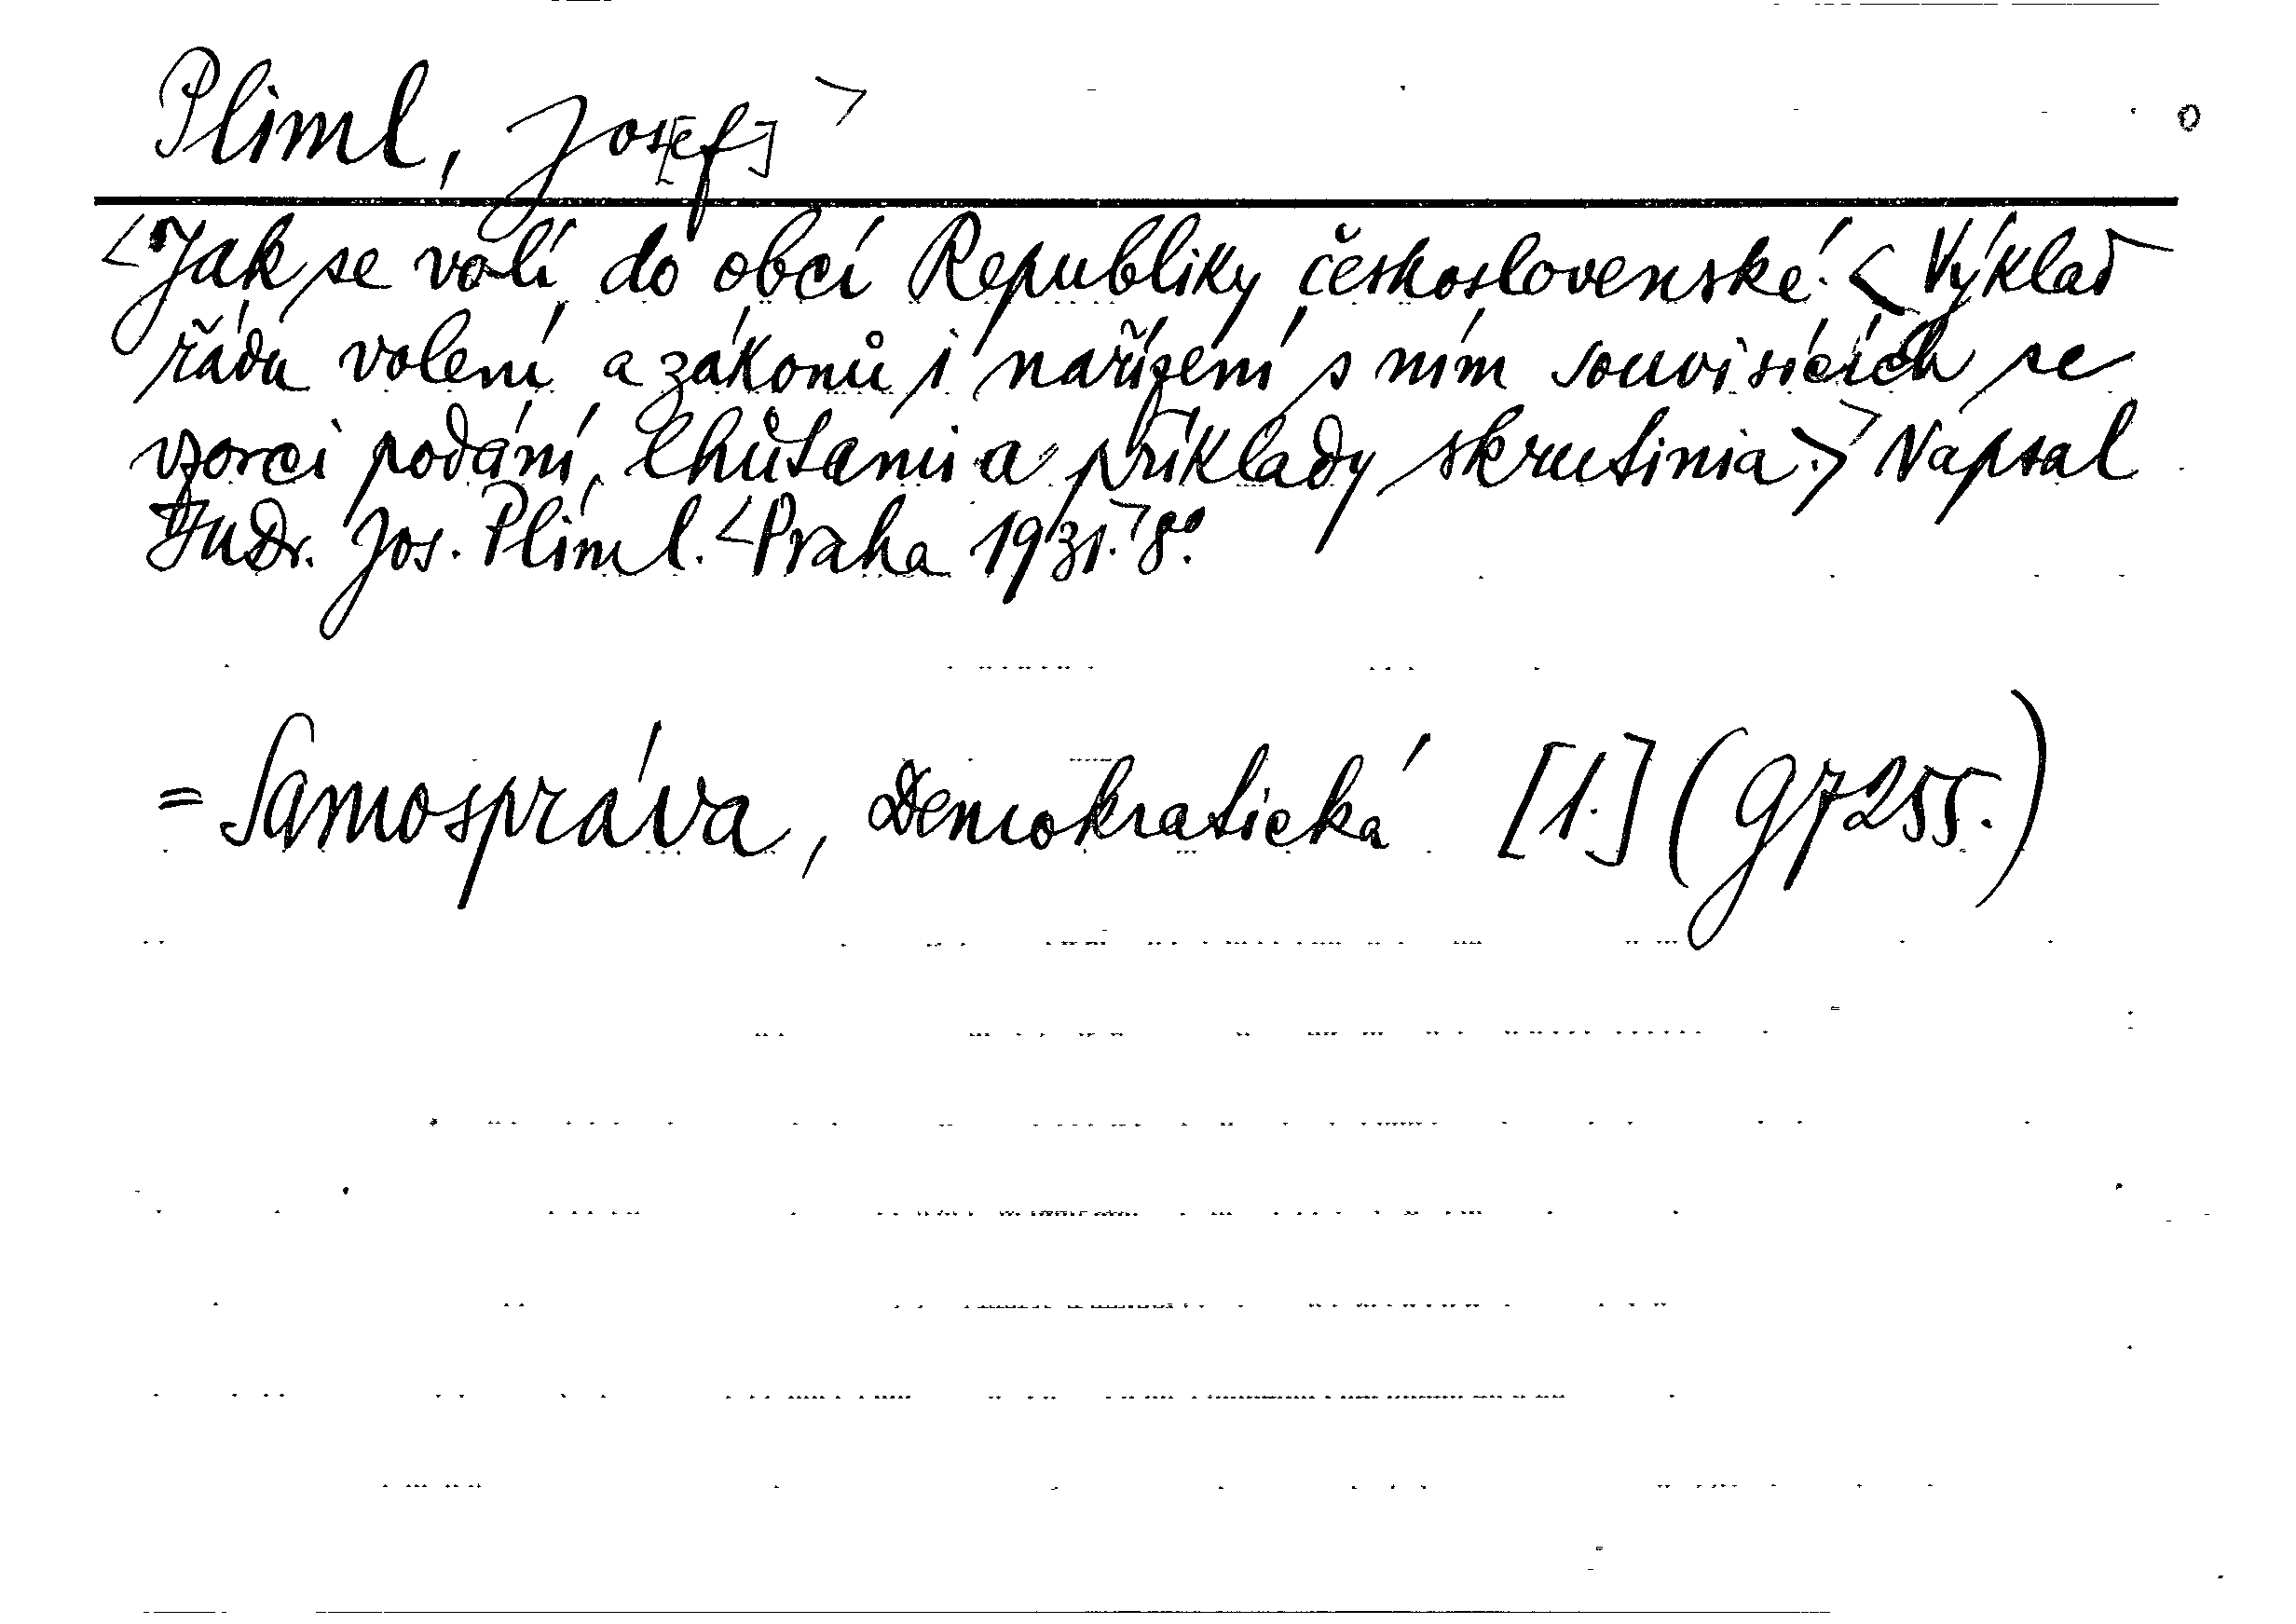 Pliml, Jos[ef] >
<Jak se volí do obcí Republiky československé. < Výklad
řádu volení a zákonů i nařízení s ním souvisících se
vzorci podání, lhůtami a příklady skrutinia.> > Napsal
JuDr. Jos. Pliml. <Praha 1931.> 8°.
= Samospráva, Demokratická [1.] (g7255.)